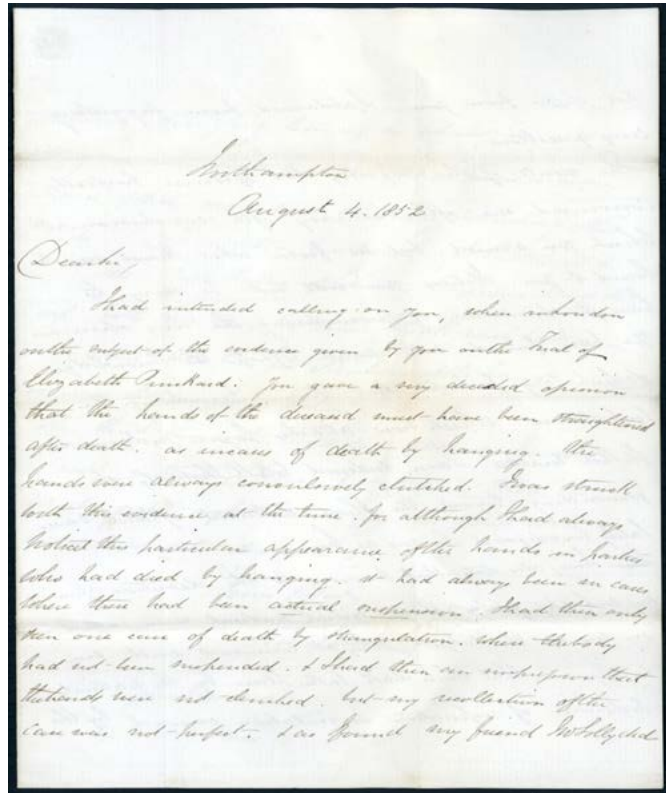 Northampton
August 4. 1852
Dear Sir,
I had intended calling on you, when in London
on the subject of the evidence given by you on the Trial of
Elizabeth Pinkard. You gave a very decided opinion
that the hands of the deceased must have been straightened
after death. as in cases of death by hanging. the
hands were always convulsively clutched. I was struck
with this evidence at the time. for although I had always
noticed this particular appearance of the hands in parties
who had died by hanging. it had always been in cases
where there had been actual suspension. I had then only
seen one case of death by strangulation. where the body
had not been suspended. & I had then an impression that
the hands were not clenched. but my recollection of the
case was not perfect. & as found my friend Mr